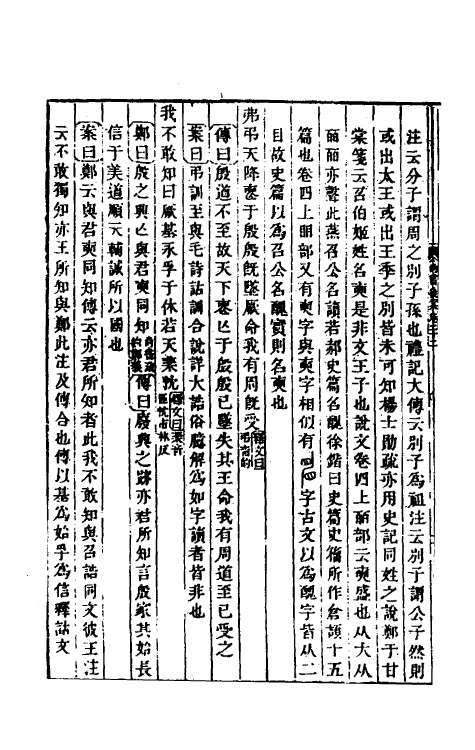 注云分子謂周之別子孫也禮記大傳云別子爲祖注云別子謂公子然則
或出太王或出王季之別皆未可知楊士勛疏亦用史記同姓之說鄭于甘
棠箋云召伯姬姓名奭是非文王子也說文卷四上皕部云奭盛也从大从
皕皕亦聲此燕召公名讀若郝史篇名醜徐鍇曰史篇史籒所作倉頡十五
篇也卷四上䀠部又有奭字與奭字相似有䀠字古文以爲醜字皆从二
目故史篇以爲召公名醜實則名奭也
弗弔天降喪于殷殷旣墜厥命我有周旣受釋文曰弔音的
傳曰殷道不至故天下喪亡于殷殷已墜失其王命我有周道至已受之
案曰弔訓至與毛詩詁訓合說詳大誥俗臆解爲如字讀者皆非也
我不敢知曰厥基永孚于休若天棐忱釋文曰棐音匪忱市林反
鄭曰殷之興亡與君奭同知傳曰廢興之跡亦君所知言殷家其始長
信于美道順天輔誠所以國也
案曰鄭云與君奭同知傳云亦君所知者此我不敢知與召誥同文彼王注
云不敢獨知亦王所知與鄭此注及傳合也傳以基爲始孚爲信釋詁文